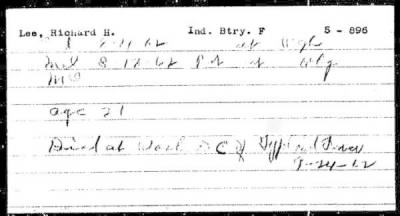 Lee, Richard H. Ind. Btry. F S - 896
62 at
Mul 8 12-62 Pvt at
Age 21
Died at Wash D C of Typhoid Fever
9-24-62